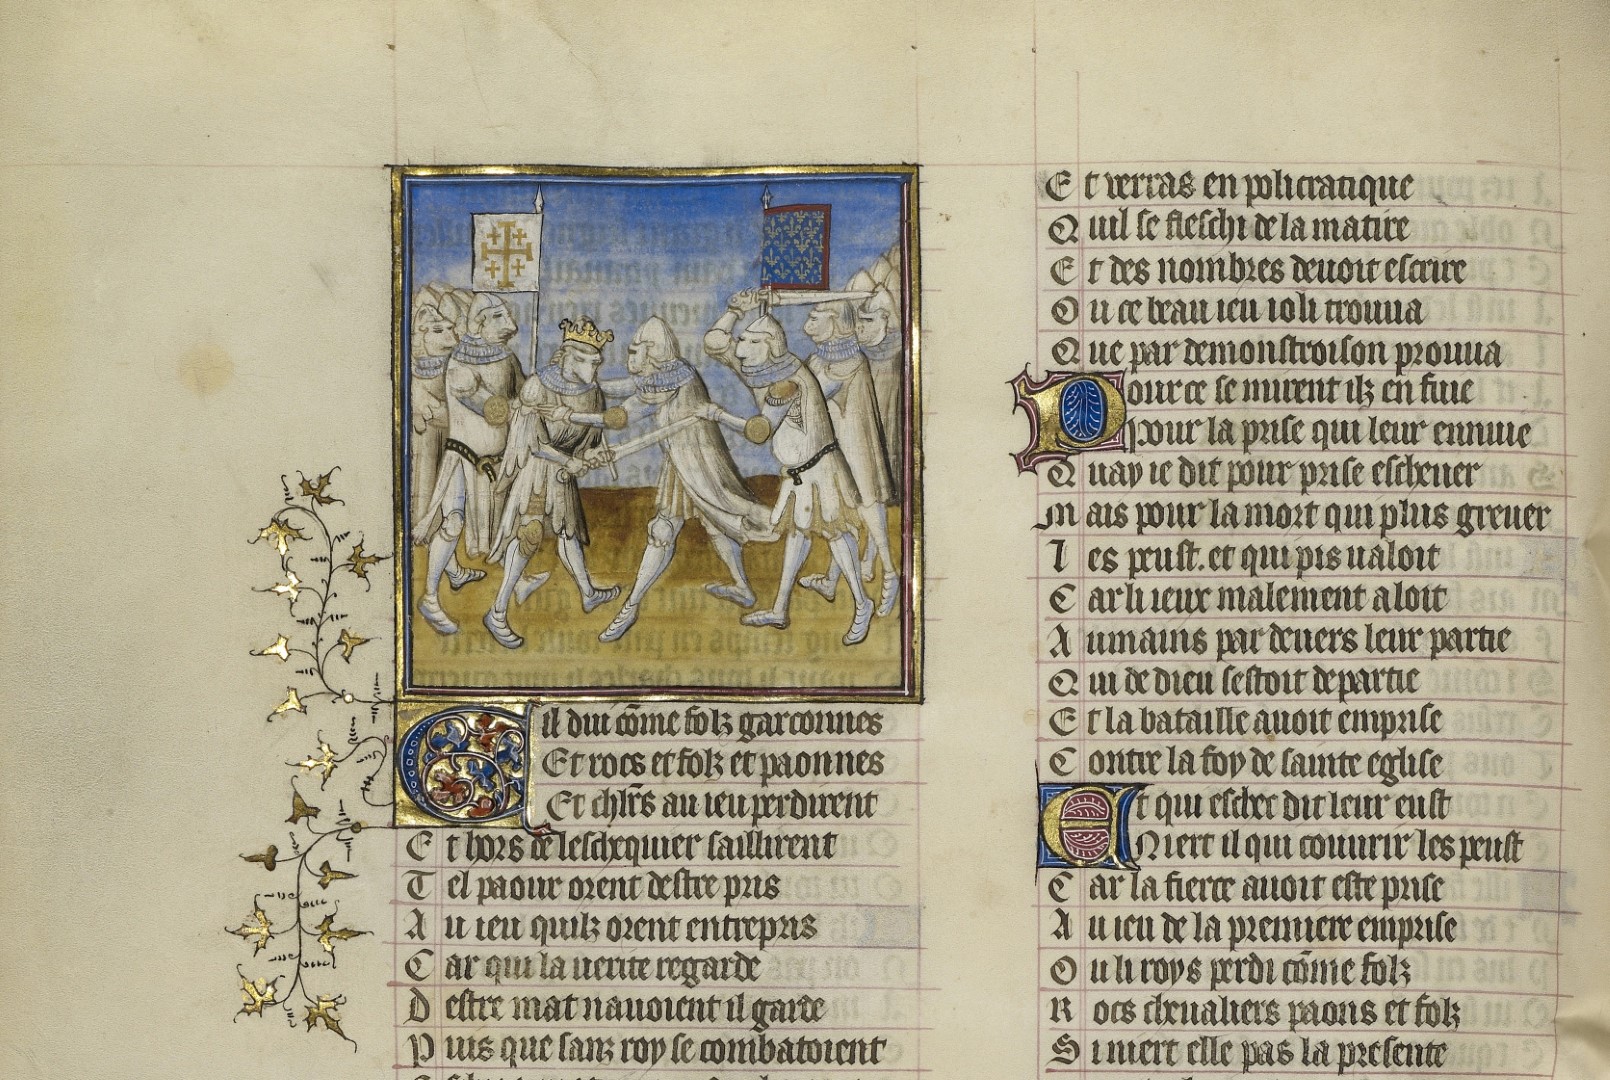 Cil dui cōme folz garconnes
Et rocs et folz et paonnes
Et chlr̄s au ieu perdirent
Et hors de leschequier saillirent
Tel paour orent destre pris
Au ieu quilz orent entrepris
Car qui la uerite regarde
Destre mat nauoient il garde
Puis que sanz roy se combatoient
Et verras en policratique
Quil se fleschi de la matire
Et des nombres deuoit escrire
Ou ce beau ieu ioli trouua
Que par demonstroison prouua
Pour ce se mirent ilz en fuie
Pour la prise qui leur ennuie
Quay ie dit pour prise escheuer
Mais pour la mort qui plus greuer
Les peust. et qui pis ualoit
Car li ieux malement aloit
Aumains par deuers leur partie
Qui de dieu sestoit departie
Et la bataille auoit emprise
Contre la foy de sainte eglise
Et qui eschec dit leur eust
Niert il qui couurir les peust
Car la fierce auoit este prise
Au ieu de la premiere emprise
Ou li roys perdi cōme folz
Rocs cheualiers paons et folz
Si niert elle pas la presente